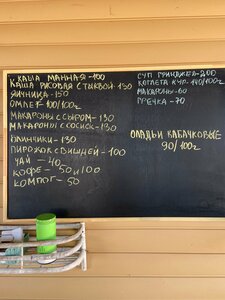 КАША МАННАЯ-100
КАША РИСОВАЯ С ТЫКВОЙ-130
ЯИЧНИЦА-150
ОМЛЕТ 100/100г
МАКАРОНЫ С СЫРОМ-130
МАКАРОНЫ С СОСИСК-130
БЛИНЧИКИ-130
ПИРОЖОК С ВИШНЕЙ-100
ЧАЙ - 40
КОФЕ - 50 и 100
КОМПОТ-50
СУП
КОТЛЕТА КУР-140/100г
МАКАРОНЫ-60
ГРЕЧКА-70
ОЛАДЬИ КАБАЧКОВЫЕ
90/100г